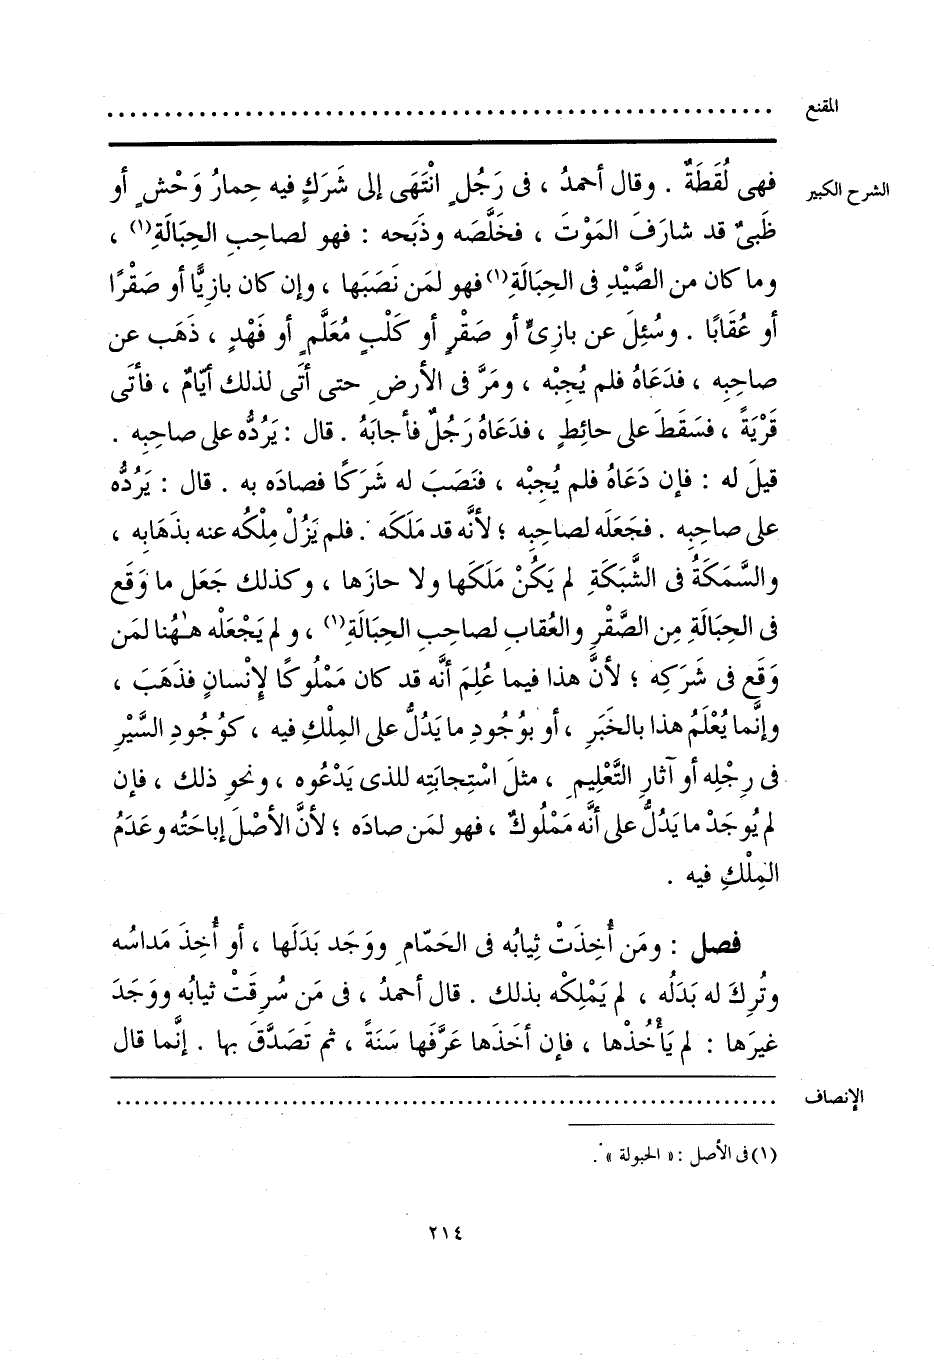 المقنع ........................................................
الشرح الكبير فهى لُقَطَةٌ . وقال أحمدُ ، فى رَجُلٍ انْتَهَى إلى شَرَكٍ فيه حِمارُ وَحْشٍ أو
ظَبىٌ قد شارَفَ المَوْتَ ، فخَلَّصَه وذَبَحه : فهو لصاحِبِ الحِبَالَةِ(١) ،
وما كان من الصَّيْدِ فى الحِبَالَةِ(١) فهو لمَن نَصَبَها ، وإن كان بازِيًّا أو صَقْرًا
أو عُقَابًا . وسُئِلَ عن بازِىٍّ أو صَقْرٍ أو كَلْبٍ مُعَلَّمٍ أو فَهْدٍ ، ذَهَب عن
صاحِبِه ، فدَعَاهُ فلم يُجِبْه ، ومَرَّ فى الأرضِ حتى أتَى لذلك أيّامٌ ، فأتَى
قَرْيَةً ، فسَقَطَ على حائطٍ ، فدَعَاهُ رَجُلٌ فأجابَهُ . قال : يَرُدُّه على صاحِبِه .
قيلَ له : فإن دَعَاهُ فلم يُجِبْه ، فنَصَبَ له شَرَكًا فصادَه به . قال : يَرُدُّه
على صاحِبِه . فجَعَلَه لصاحِبِه ؛ لأنَّه قد مَلَكَه . فلم يَزُلْ مِلْكُه عنه بذَهابِه ،
والسَّمَكَةُ فى الشَّبَكَةِ لم يَكُنْ مَلَكَها ولا حازَها ، وكذلك جَعَل ما وَقَع
فى الحِبَالَةِ مِن الصَّقْرِ والعُقابِ لصاحِبِ الحِبَالَةِ(١) ، ولم يَجْعَلْه هـٰهُنا لمَن
وَقَع فى شَرَكِه ؛ لأنَّ هذا فيما عُلِمَ أنَّه قد كان مَمْلُوكًا لإنْسانٍ فذَهَبَ ،
وإنَّما يُعْلَمُ هذا بالخَبَرِ ، أو بوُجُودِ ما يَدُلُّ على المِلْكِ فيه ، كوُجُودِ السَّيْرِ
فى رِجْلِه أو آثارِ التَّعْلِيمِ ، مثلَ اسْتِجابَتِه للذى يَدْعُوه ، ونحوِ ذلك ، فإن
لم يُوجَدْ ما يَدُلُّ على أنَّه مَمْلُوكٌ ، فهو لمَن صادَه ؛ لأنَّ الأصْلَ إباحَتُه وعَدَمُ
المِلْكِ فيه .
فصل : ومَن أُخِذَتْ ثِيابُه فى الحَمّامِ ووَجَد بَدَلَها ، أو أُخِذَ مَداسُه
وتُرِكَ له بَدَلُه ، لم يَمْلِكْه بذلك . قال أحمدُ ، فى مَن سُرِقَتْ ثيابُه ووَجَدَ
غيرَها : لم يَأْخُذْها ، فإن أخَذَها عَرَّفَها سَنَةً ، ثم تَصَدَّقَ بها . إنَّما قال
الإنصاف ........................................................
(١) فى الأصل : « الحبولة » .
٢١٤